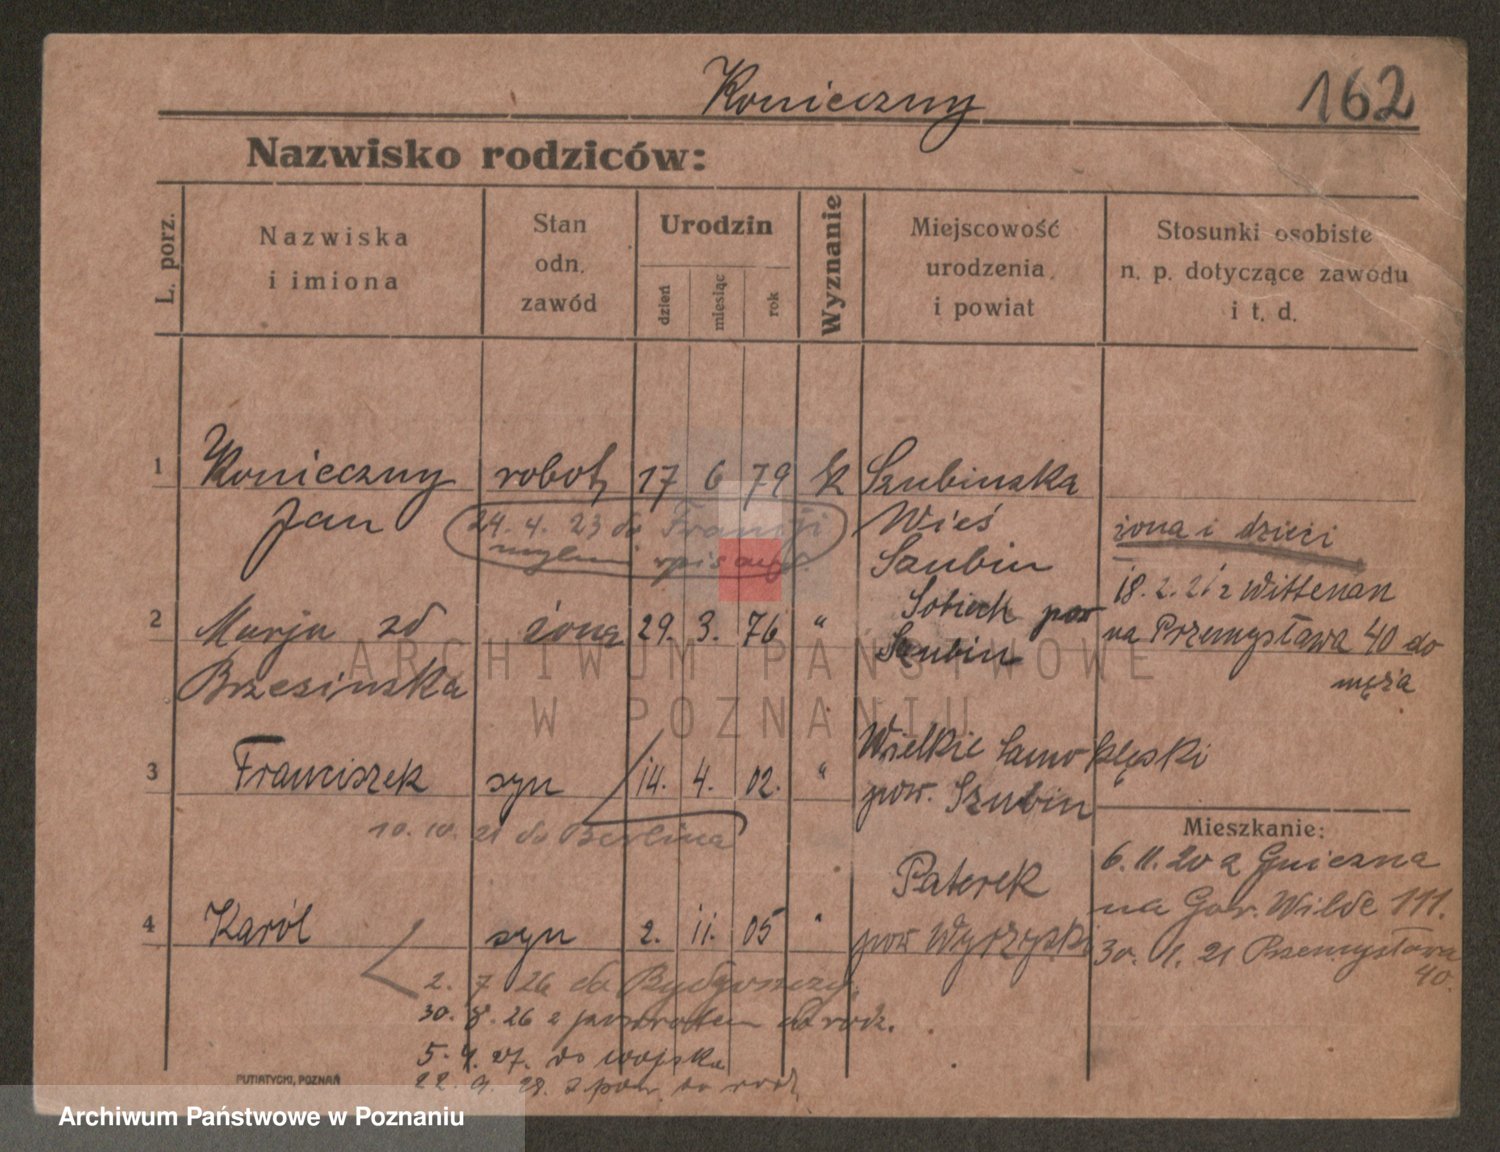 Konieczny
162
Nazwisko rodziców:
L. porz.
Nazwiska
i imiona
Stan
odn.
zawód
Urodzin
dzień
miesiąc
rok
Wyznanie
Miejscowość
urodzenia
i powiat
Stosunki osobiste
n. p. dotyczące zawodu
i t. d.
1 Konieczny robot. 17 6 79 k Szubinska
Jan Wieś
Szubin
24. 4. 23 do Francji
mylnie wpisano.
żona i dzieci
18. 2. 21 z Wittenau
na Przemysława 40 do
męża
2 Marja zd żona 29. 3. 76 " pow
Brzesinska Szubin
ARCHIWUM PAŃSTWOWE
W POZNANIU
3 Franciszek syn 14. 4. 02. " Wielkie Samoklęski
pow. Szubin
10. 10. 21 do Berlina
Mieszkanie:
6. 11. 20 z Gniezna
na Gór. Wilde 111.
30. 1. 21 Przemysława
40.
4 Karól syn 2. 11. 05 " Paterek
pow Wyrzyski
2. 7 26 do Bydgoszczy.
30. 8. 26 z powrotem do rodz.
5. 4. 27. do wojska
22. 9. 28. z pow. do rodz.
PUTIATYCKI, POZNAŃ
Archiwum Państwowe w Poznaniu